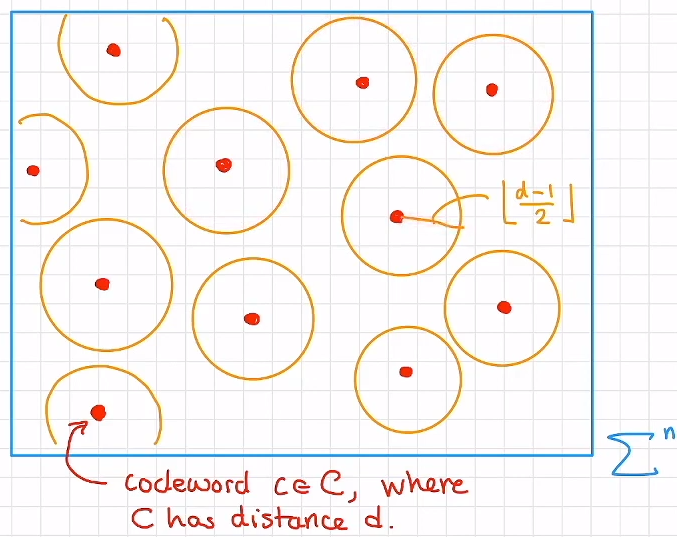 ⌊(d-1)/2⌋
Σⁿ
codeword c∈C, where
C has distance d.